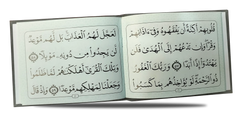 قُلُوبِهِمْ أَكِنَّةً أَن يَفْقَهُوهُ وَفِىٓ ءَاذَانِهِمْ
وَقْرًا وَإِن تَدْعُهُمْ إِلَى ٱلْهُدَىٰ فَلَن
يَهْتَدُوٓا۟ إِذًا أَبَدًا ۝ وَرَبُّكَ ٱلْغَفُورُ
ذُو ٱلرَّحْمَةِ لَوْ يُؤَاخِذُهُم بِمَا كَسَبُوا۟
لَعَجَّلَ لَهُمُ ٱلْعَذَابَ بَل لَّهُم مَّوْعِدٌ
لَّن يَجِدُوا۟ مِن دُونِهِۦ مَوْئِلًا ۝
وَتِلْكَ ٱلْقُرَىٰٓ أَهْلَكْنَٰهُمْ لَمَّا ظَلَمُوا۟
وَجَعَلْنَا لِمَهْلِكِهِم مَّوْعِدًا ۝ وَإِذْ قَالَ